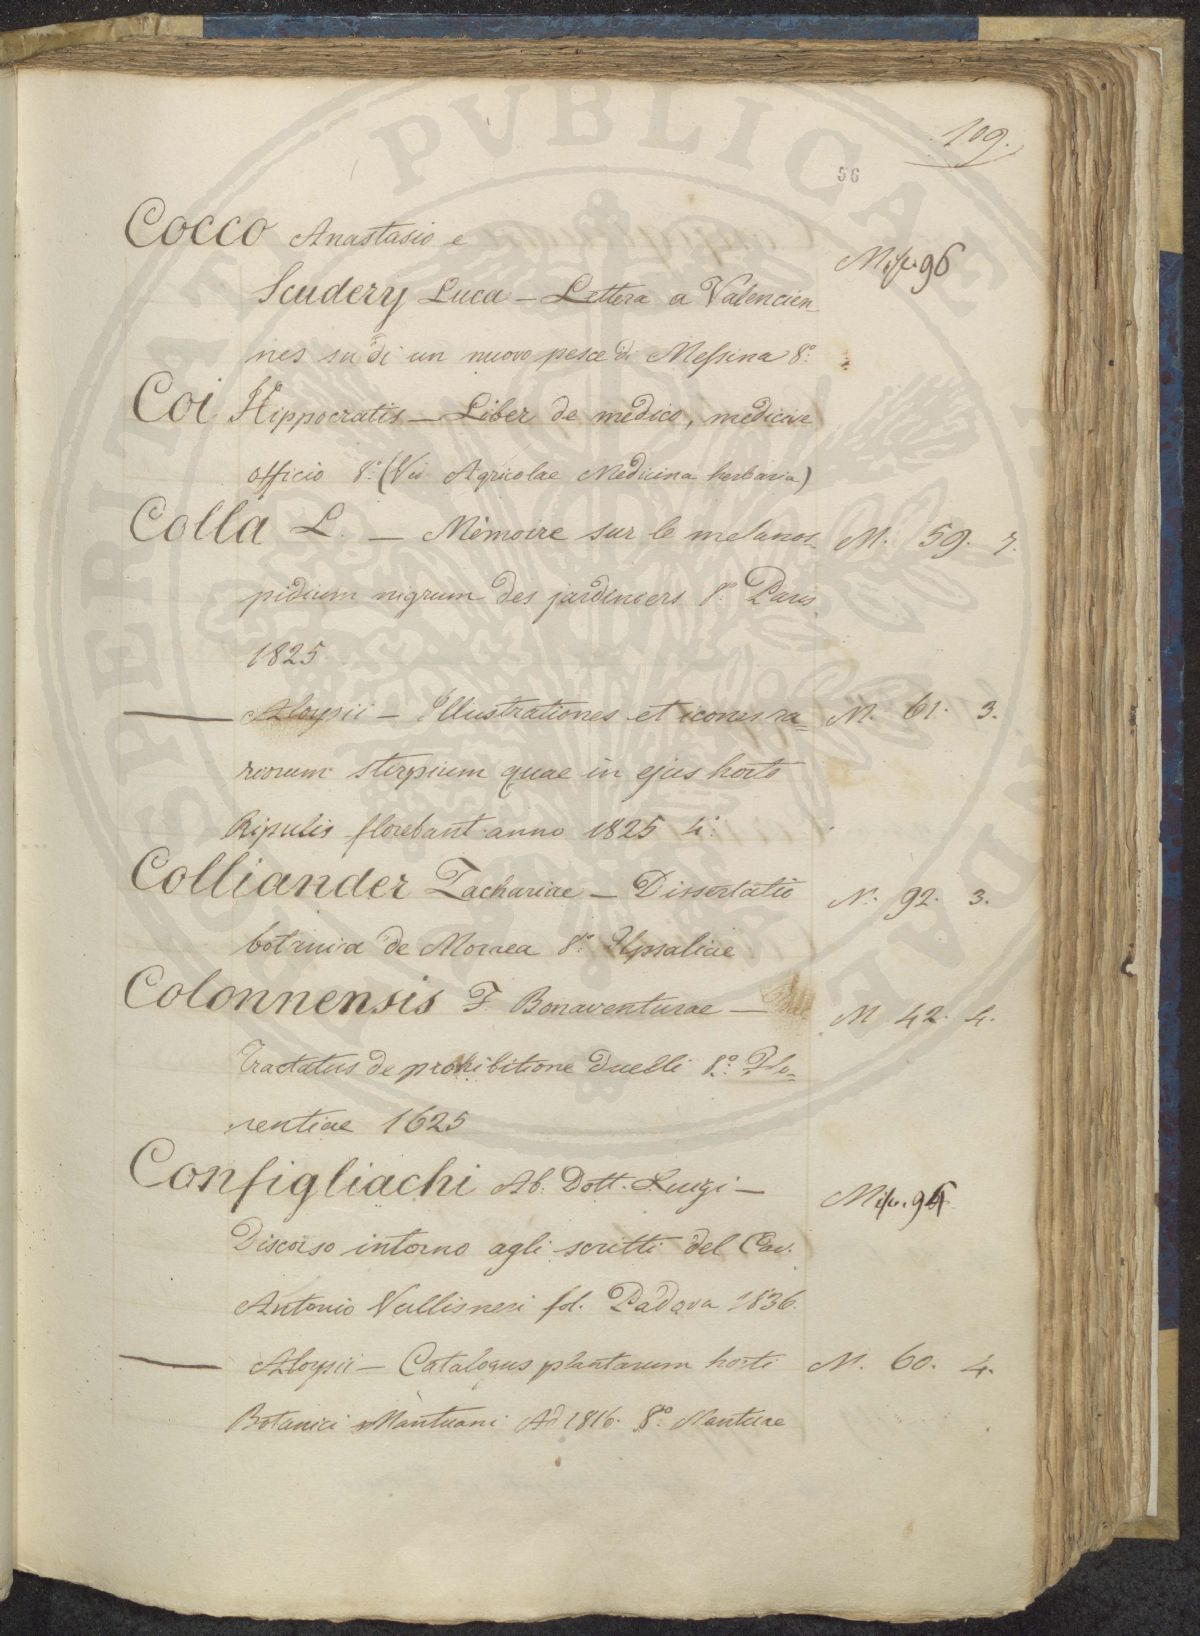 109.
56
COCCO Anastasio e
Misc. 96
Scudery Luca – Lettera a Valencien_
nes su di un nuovo pesce di Messina 8.°
Coi Hippocratis – Liber de medico, medicive
officio 8.° (Vis Agricolae Medicina herbaria)
Colla L. – Mèmoire sur le melanos_ M. 59. 7.
pidium nigrum des jardiniers 8.° Paris
1825
Aloysii – Illustrationes et icones ra= M. 61. 3.
riorum stirpium quae in ejus horto
Ripulis florebant anno 1825 4.°
Colliander Zachariae – Dissertatio N. 92. 3.
botanica de Moraea 8.° Upsaliae
Colonnensis F. Bonaventurae – M 42. 4.
Tractatus de prohibitione duelli 8.° Flo=
rentiae 1625
Configliachi Ab. Dott. Luigi –
Misc. 94
Discorso intorno agli scritti del Cav.
Antonio Vallisneri fol. Padova 1836.
Aloysii – Catalogus plantarum horti M. 60. 4.
Botanici Mantuani Ad 1816. 8.° Mantuae